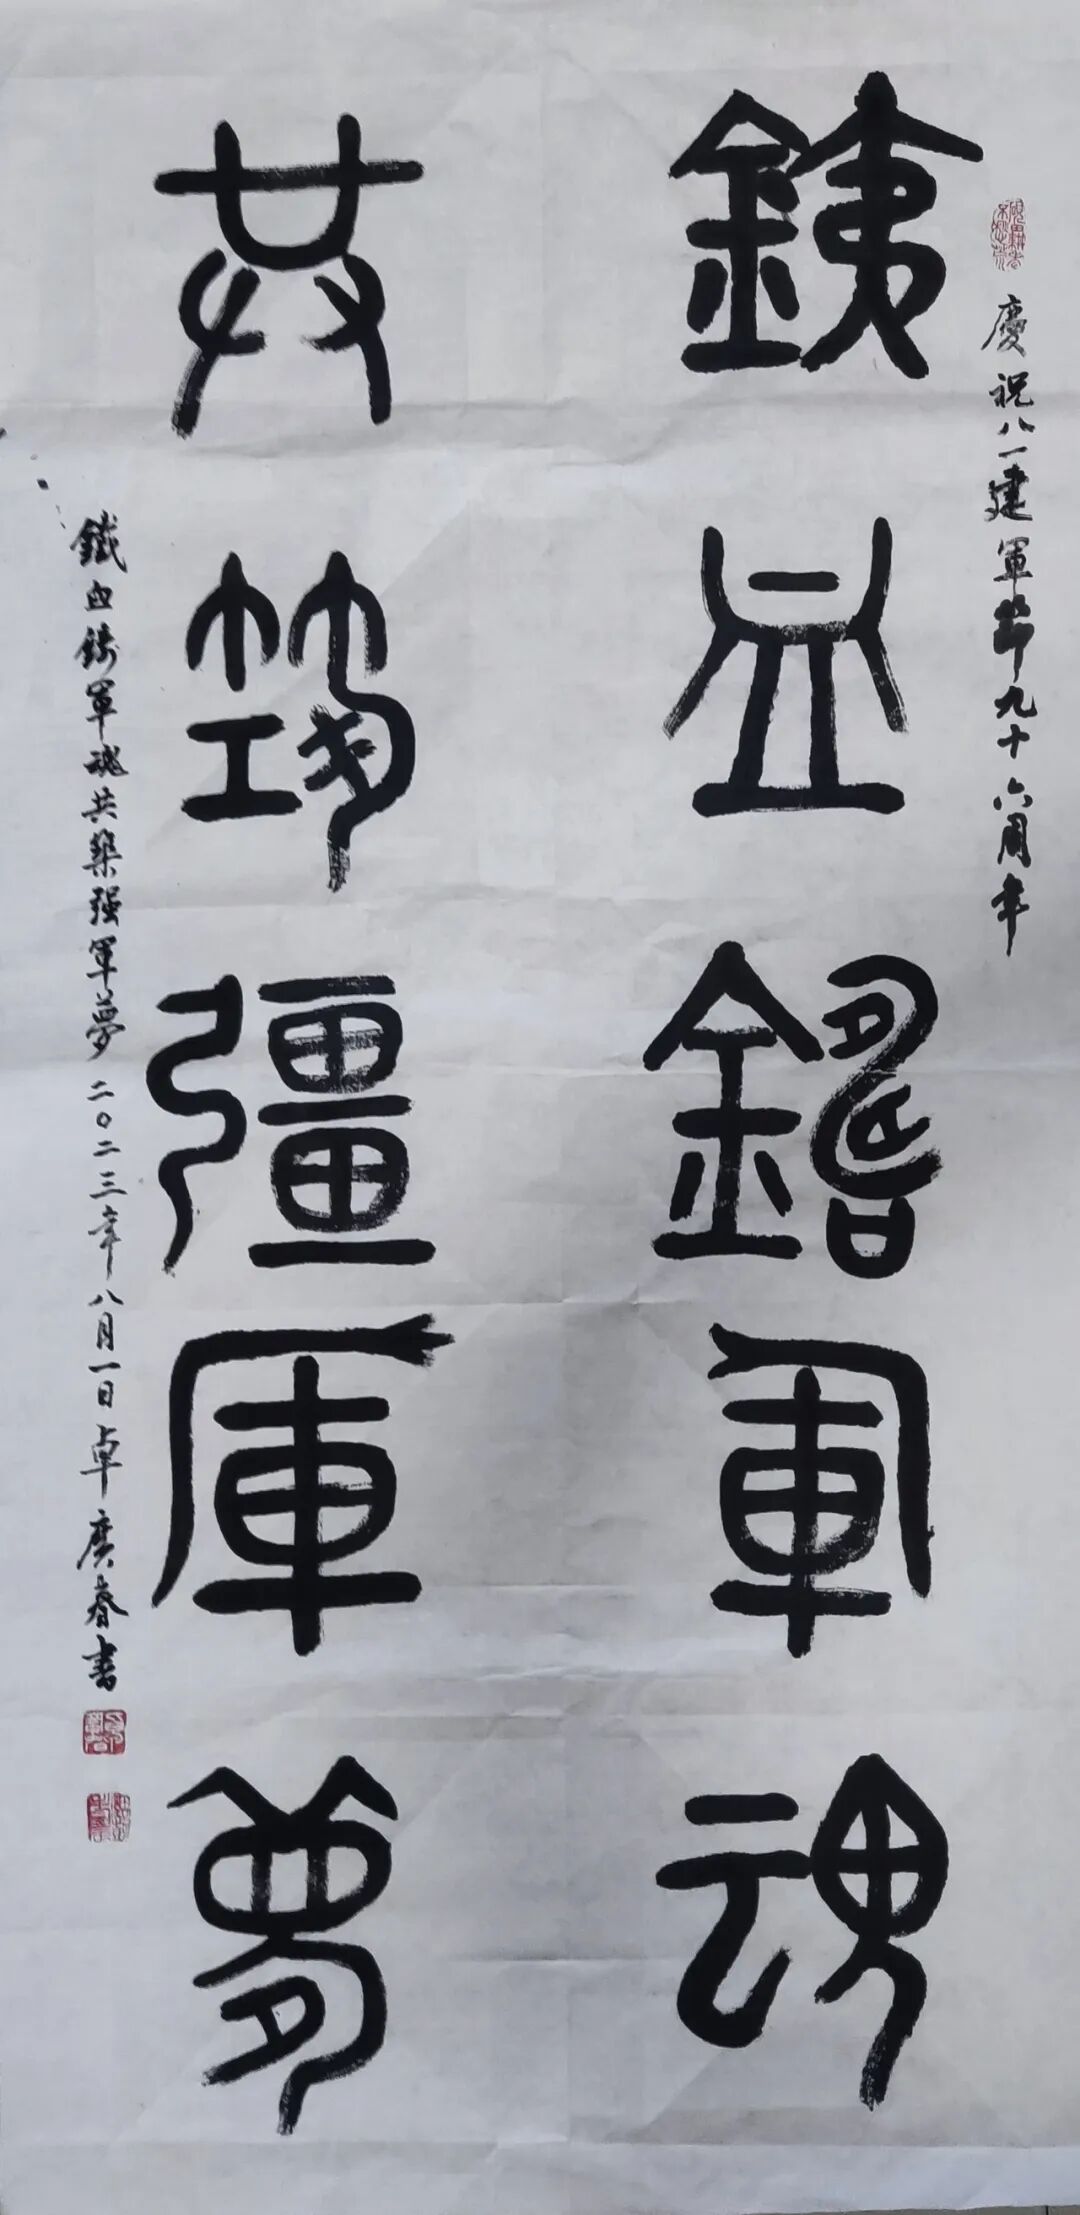 慶祝八一建軍節九十六周年
銕血鑄軍魂
共筑彊軍夢
鐵血鑄軍魂共築强軍夢二〇二三年八月一日卓廣春書